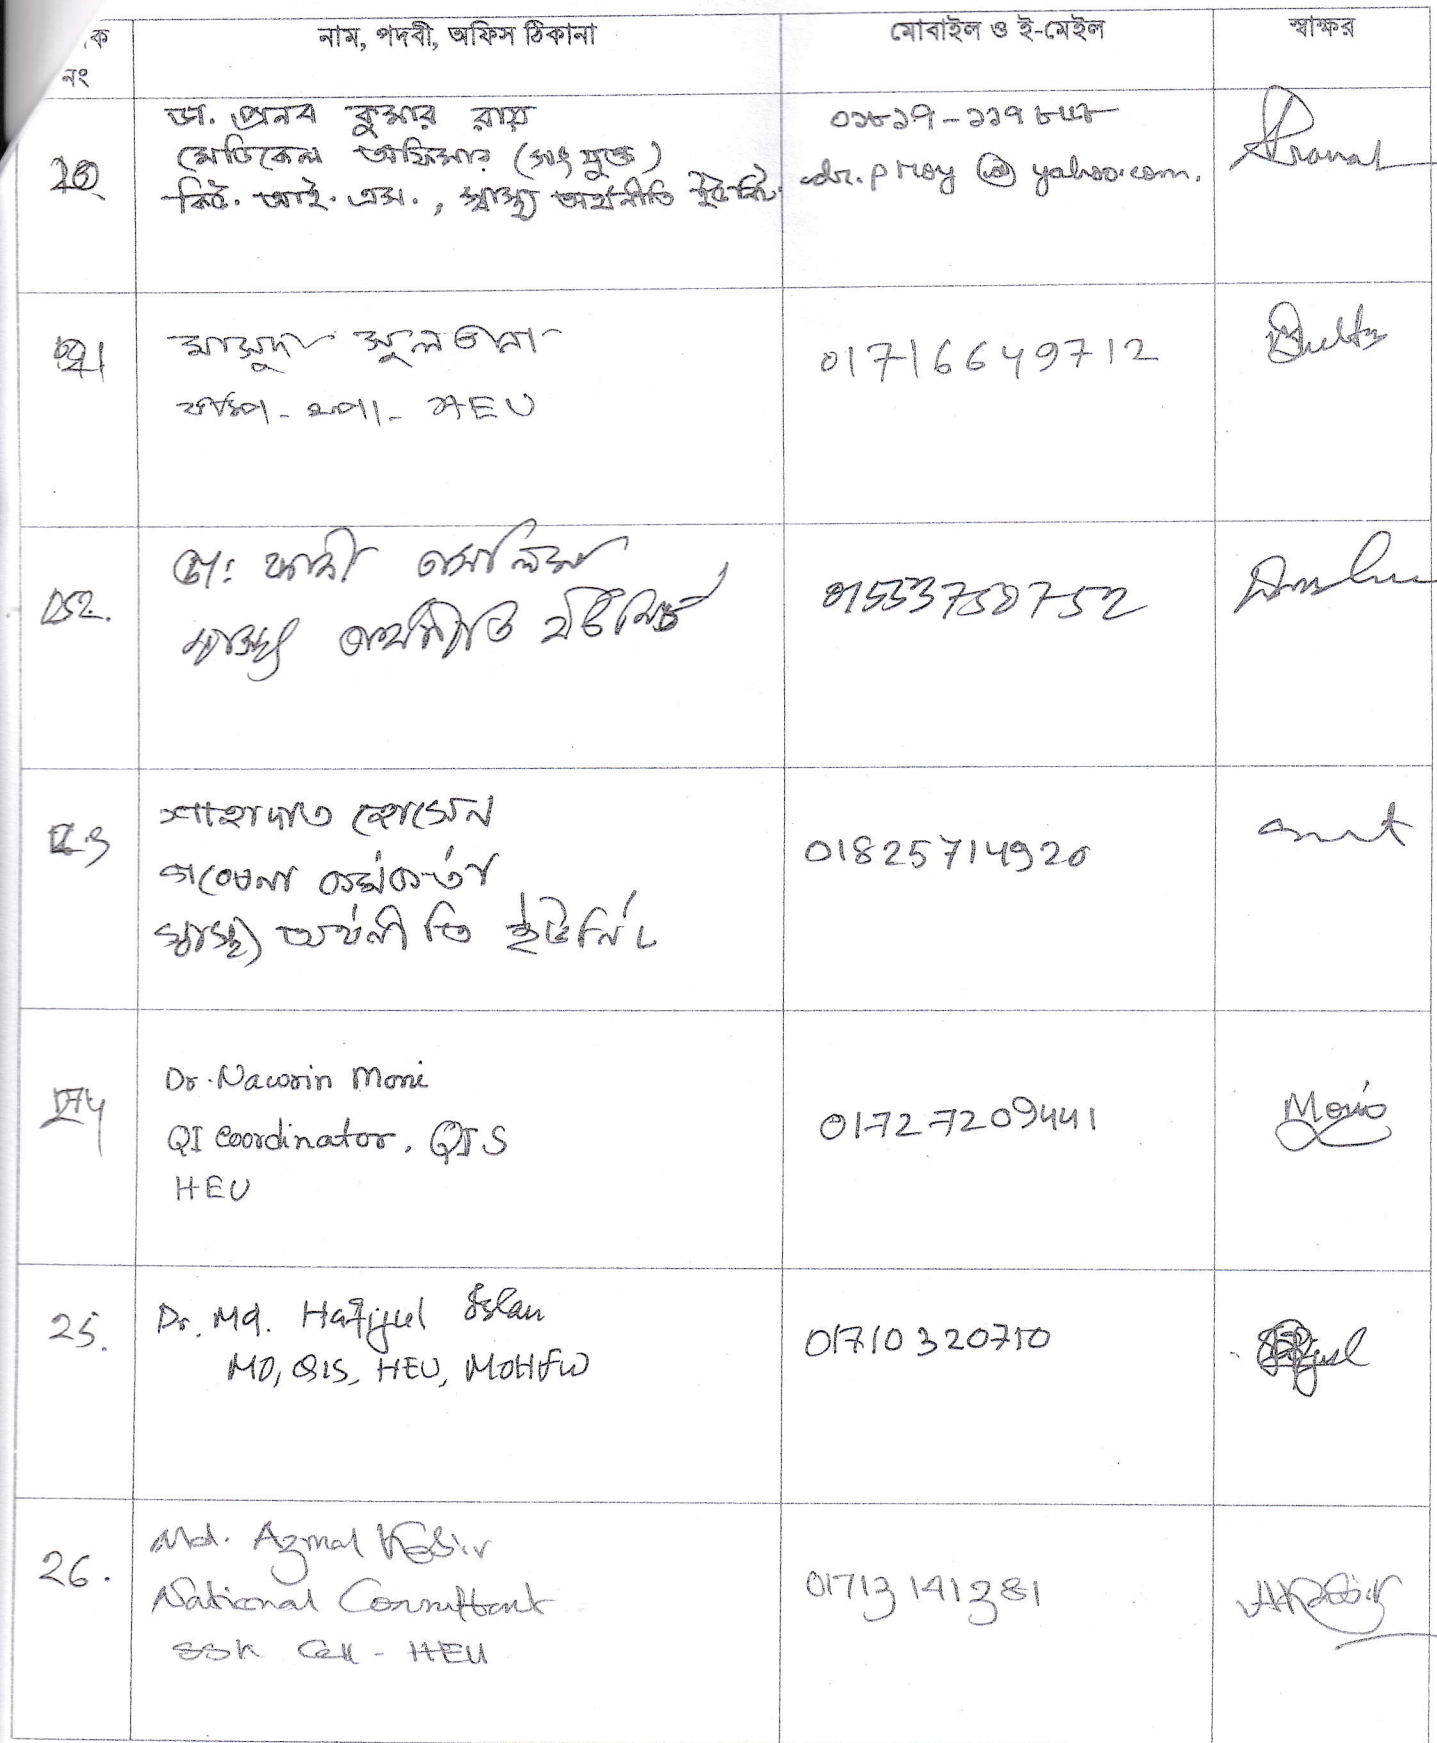 ক নং
নাম, পদবী, অফিস ঠিকানা
মোবাইল ও ই-মেইল
স্বাক্ষর
ডা. প্রনব কুমার রায়
মেডিকেল অফিসার (সংযুক্ত)
কিউ. আই. এস., স্বাস্থ্য অর্থনীতি ইউনিট
০১৮১৭-১১৭
dr.proy@yahoo.com.
Pranab
মাসুদা সুলতানা
HEU
01716649712
স্বাস্থ্য অর্থনীতি ইউনিট
01553750752
শাহাদাত হোসেন
গবেষনা কর্মকর্তা
স্বাস্থ্য অর্থনীতি ইউনিট
01825714920
Dr. Nawrin Moni
QI Coordinator, QIS
HEU
01727209441
Moni
25.
Dr. Md. Hafijul Islam
MO, QIS, HEU, MOHFW
01710320710
26.
Md. Azmal Kabir
National Consultant
SSK Cell - HEU
01713141381
AKabir